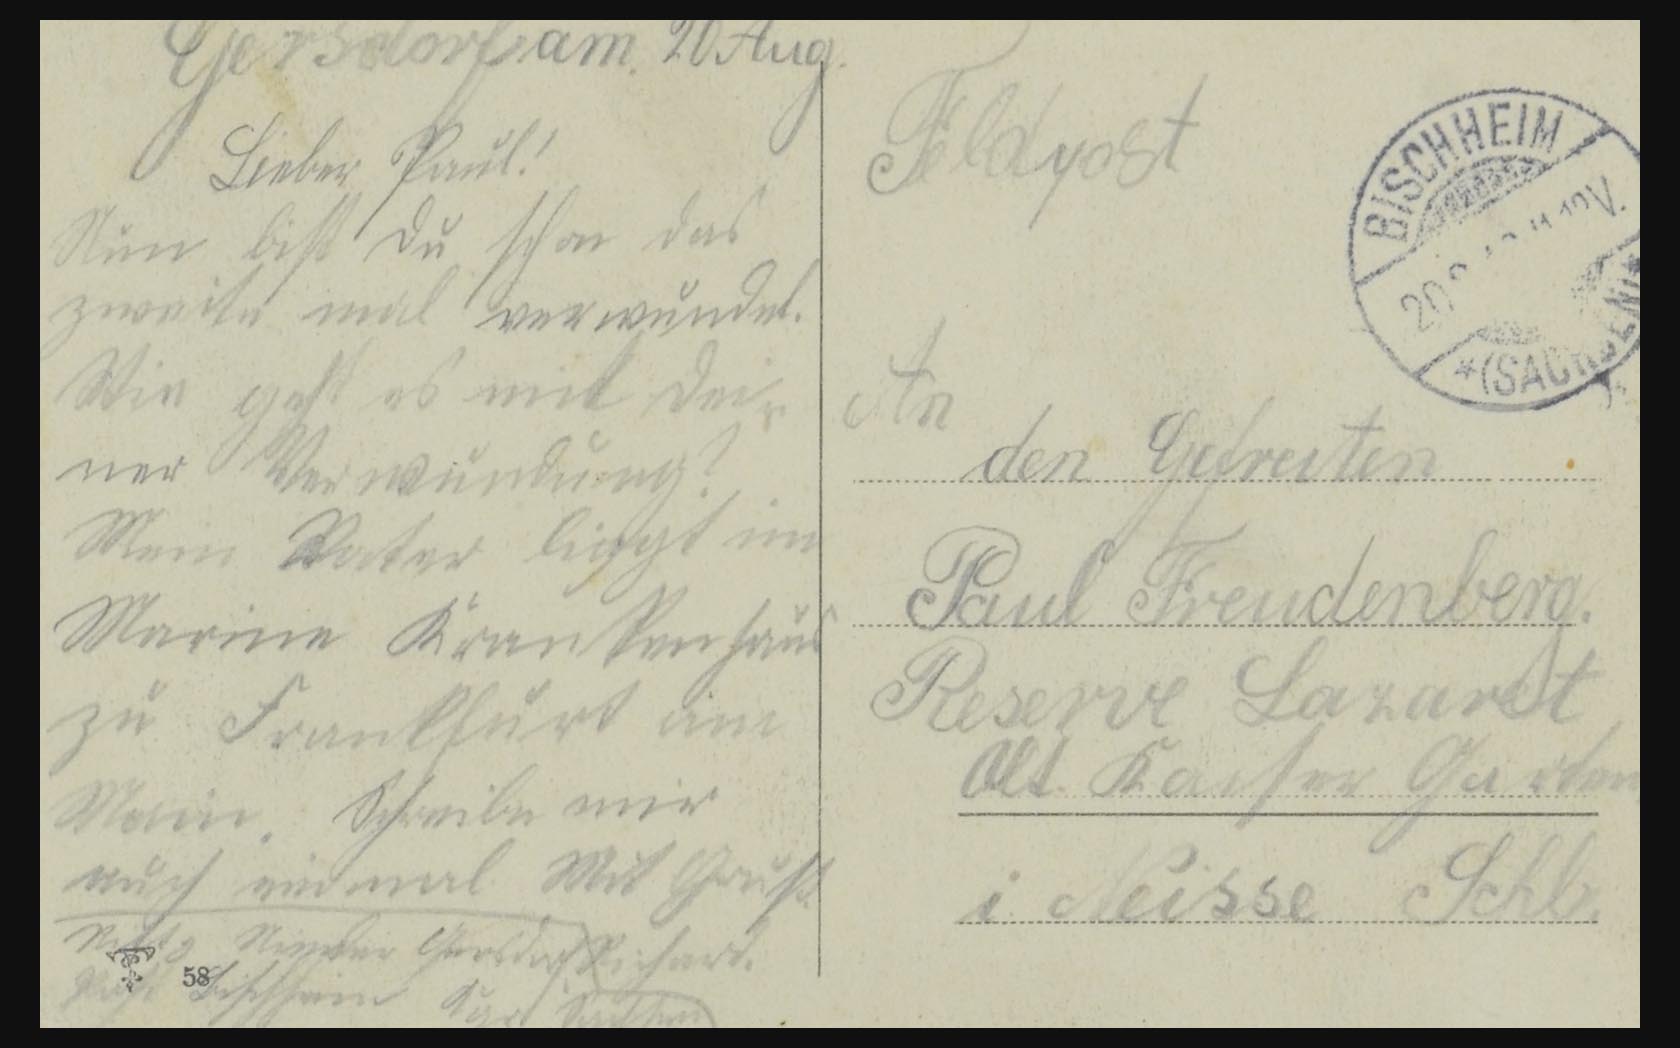 Gersdorf am 20 Aug.
Lieber Paul!
Nun bist du schon das
zweite mal verwundet.
Wie geht es mit Dei-
ner Verwundung?
Mein Vater liegt im
Marine Krankenhaus
zu Frankfurt am
Main. Schreibe mir
auch einmal. Mit Gruß
Nieder Gersdorf Richard.
Post Bischheim Sachsen
58
Feldpost
BISCHHEIM
(SACHSEN)
An
den Gefreiten
Paul Freudenberg.
Reserve Lazarett
Abt. Kaiser Garten
i. Neisse Schl.